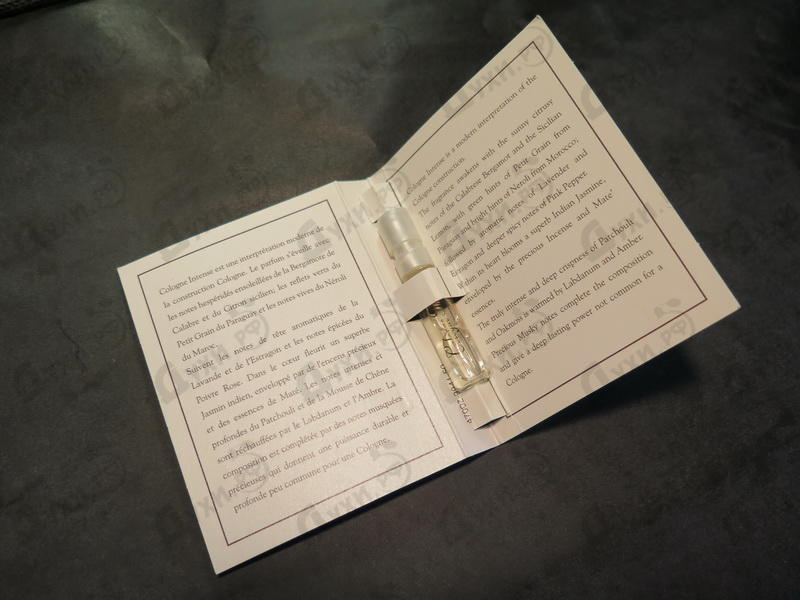 Cologne Intense est une interprétation moderne de
la construction Cologne. Le parfum s'éveille avec
les notes hespéridés ensoleillées de la Bergamote de
Calabre et du Citron sicilien; les reflets verts du
Petit Grain du Paraguay et les notes vives du Néroli
du Maroc.
Suivent les notes de tête aromatiques de la
Lavande et de l'Estragon et les notes épicées du
Poivre Rose. Dans le cœur fleurit un superbe
Jasmin indien, enveloppé par de l'encens précieux
et des essences de Maté. Les notes intenses et
profondes du Patchouli et de la Mousse de Chêne
sont réchauffées par le Labdanum et l'Ambre. La
composition est complétée par des notes musquées
précieuses qui donnent une puissance durable et
profonde peu commune pour une Cologne.
Cologne Intense is a modern interpretation of the
Cologne construction.
The fragrance awakens with the sunny citrusy
notes of the Calabrese Bergamot and the Sicilian
Lemon, with green hints of Petit Grain from
Paraguay and bright hints of Neroli from Morocco;
followed by aromatic notes of Lavender and
Estragon and deeper spicy notes of Pink Pepper.
Within its heart blooms a superb Indian Jasmine,
enveloped by the precious Incense and Mate'
essences.
The truly intense and deep crispness of Patchouli
and Oakmoss is warmed by Labdanum and Amber.
Precious Musky notes complete the composition
and give a deep lasting power not common for a
Cologne.